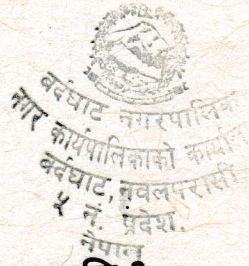 बर्दघाट नगरपालिका
नगर कार्यपालिकाको कार्यालय
बर्दघाट, नवलपरासी
५ नं. प्रदेश.
नेपाल